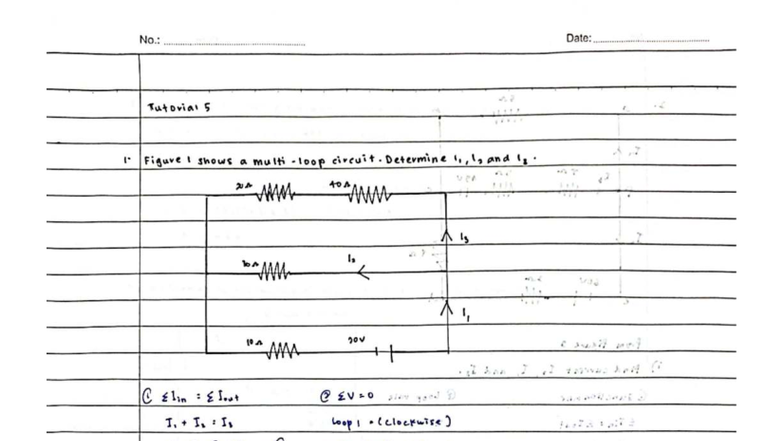 No.:
Date:
Tutorial 5
1. Figure 1 shows a multi-loop circuit. Determine I₁, I₂ and I₃.
40Ω
I₃
I₂
10Ω
I₁
① ΣIin = ΣIout
② ΣV=0
I₁ + I₂ = I₃
Loop 1 = (clockwise)